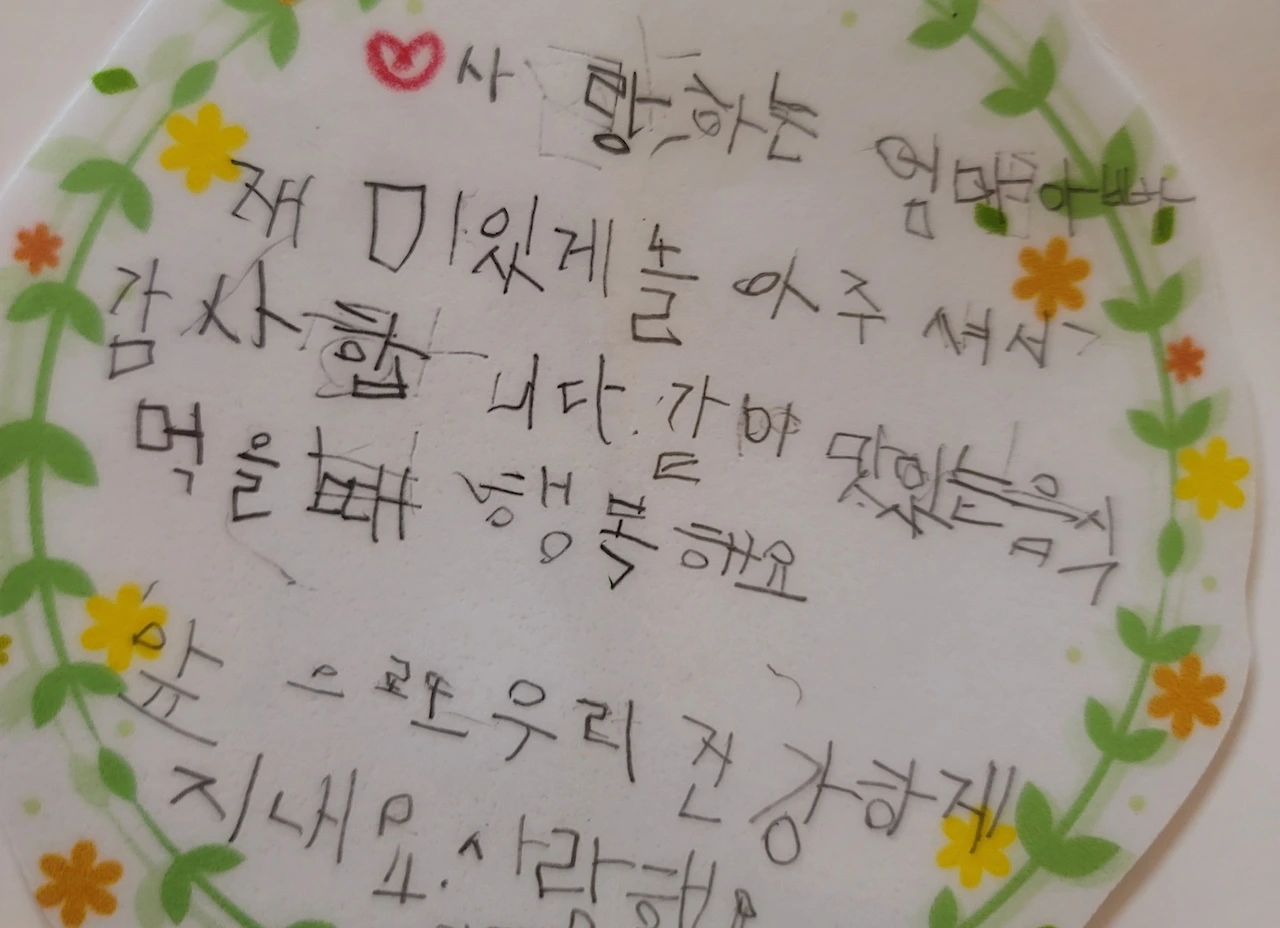 사랑하는 엄마아빠
재미있게 놀아주셔서
감사합니다. 같이 맛있는 음식
먹을때 행복해요
우리 건강하게
지내요. 사랑해요